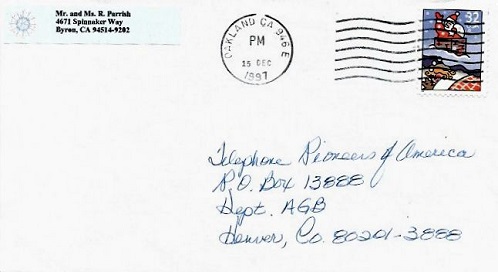 Mr. and Ms. R. Parrish
4671 Spinnaker Way
Byron, CA 94514-9202
OAKLAND CA 946 E
PM
15 DEC
1997
32
Telephone Pioneers of America
P.O. Box 13888
Dept. AGB
Denver, Co. 80201-3888